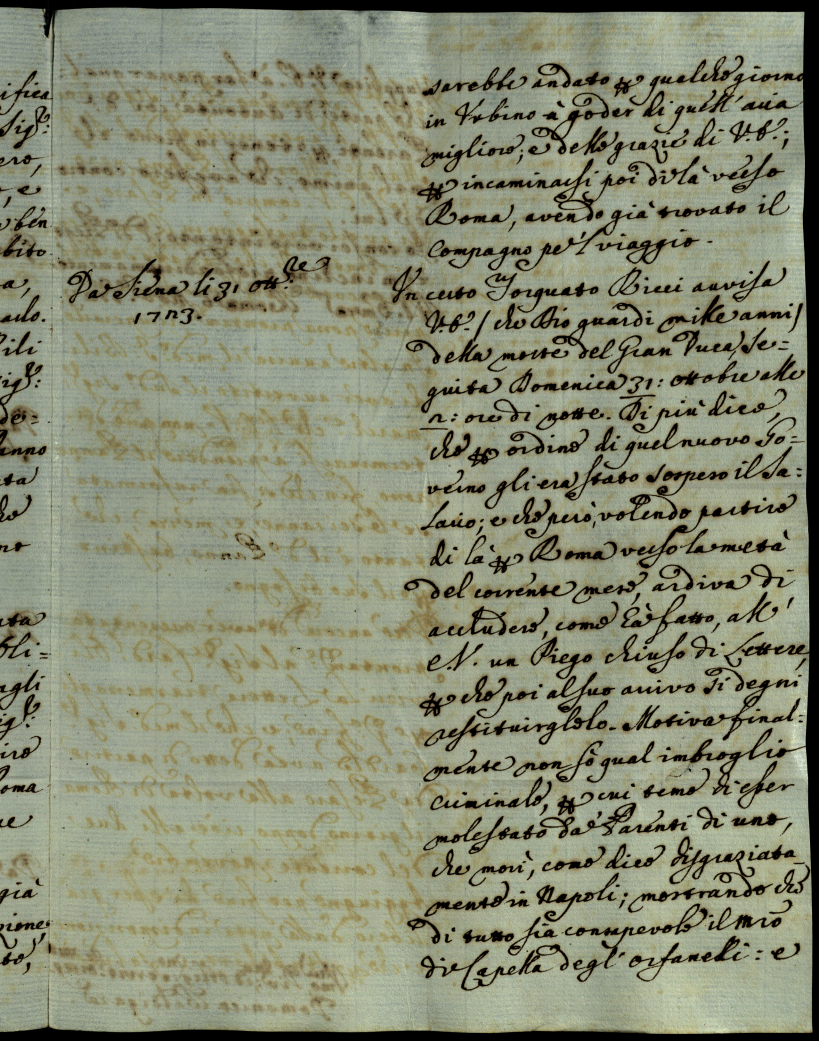 ifica
Sig.r:
ero,
, e
ben
bito
a,
ado.
ili
ig.r:
de=
anno
ta
he
ata
bli=
agli
ig.r:
ire
oma
ue
già
zione
to,
Da Siena li 31 ott.re
1723.
sarebbe andato ꝑ qualche giorno
in Vrbino à goder di quell'aria
migliore; e delle grazie di V.E.;
ꝑ incaminarsi poi di là verso
Roma, avendo già trovato il
Compagno pe'l viaggio.
Vn certo Torquato Ricci avvisa
V.E. / che Dio guardi mille anni /
della morte del Gran Duca, se=
guita Domenica 31: ottobre alle
2: ore di notte. Di più dice,
che ꝑ ordine di quel nuovo Go=
verno gli era stato sospeso il Sa=
lario; e che però, volendo partire
di là ꝑ Roma verso la metà
del corrente mese, ardiva di
accludere, come hà fatto, all'
E.V. un Piego chiuso di Lettere,
ꝑ che poi al suo arrivo si degni
restituirglelo. Motiva final=
mente non sò qual imbroglio
criminale, ꝑ cui teme di esser
molestato da' Parenti di uno,
che morì, come dice disgraziata=
mente in Napoli; mostrando che
di tutto sia consapevole il Mro
di Capella degl'orfanelli: e